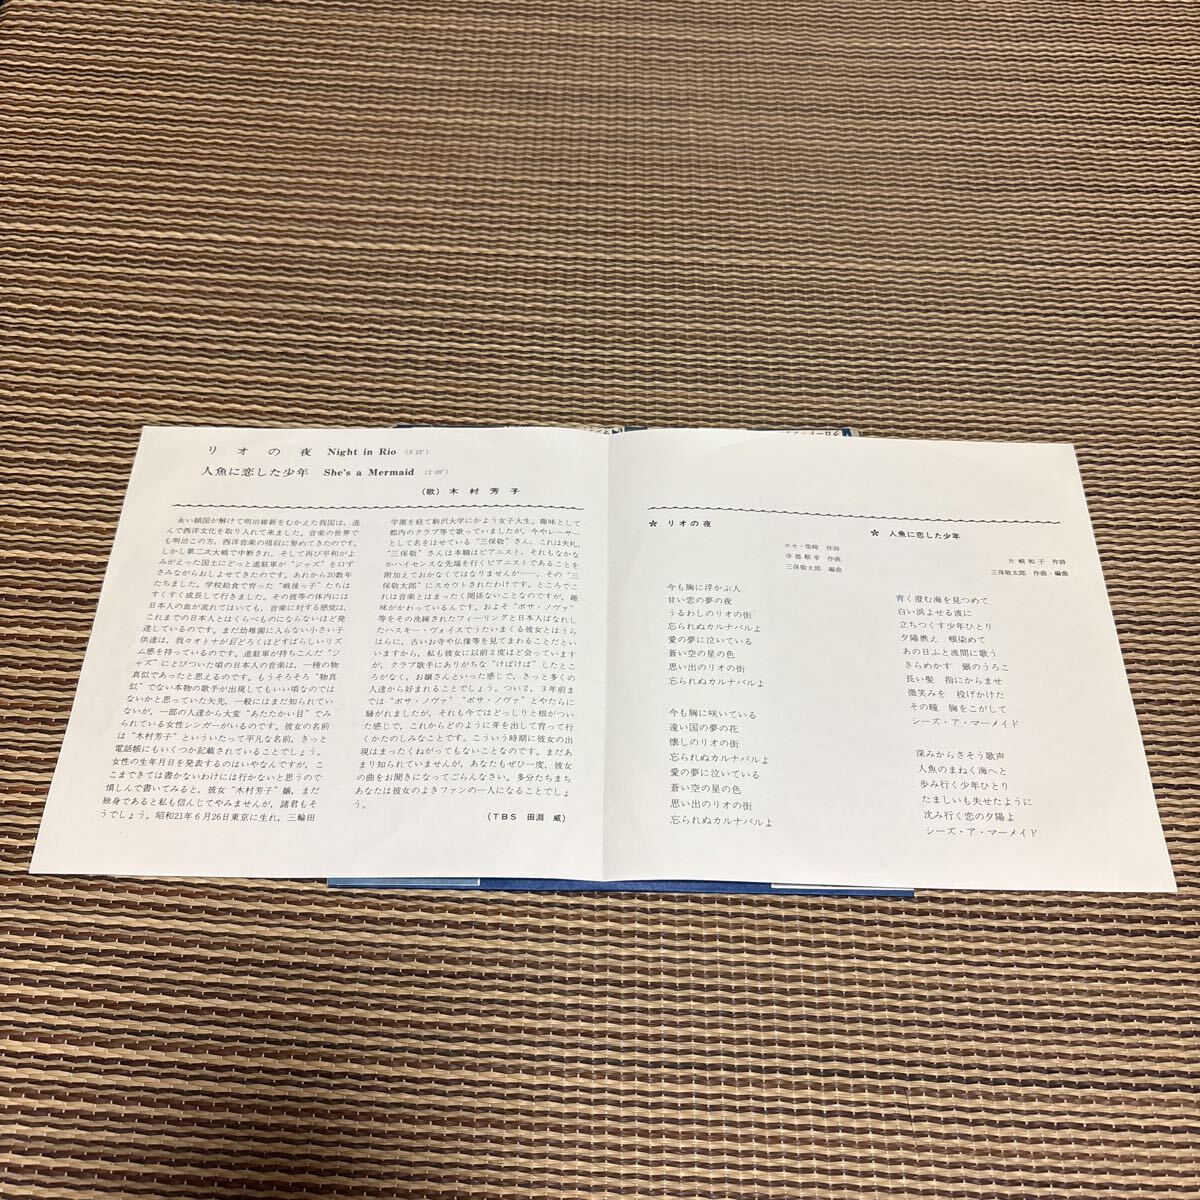 リオの夜 Night in Rio (3′15″)
人魚に恋した少年 She's a Mermaid (2′09″)
(歌) 木村芳子
永い鎖国が解けて明治維新をむかえた我国は，進
んで西洋文化を取り入れて来ました。音楽の世界で
も明治この方，西洋音楽の吸収に努めてきたのです。
しかし第二次大戦で中断され，そして再び平和がよ
みがえった国土にどっと進駐軍が“ジャズ”を口ず
さみながらおしよせてきたのです。あれから20数年
たちました。学校給食で育った“戦後っ子”たちは
すくすく成長して行きました。その彼等の体内には
日本人の血が流れてはいても，音楽に対する感覚は，
これまでの日本人とはくらべものにならないほど発
達しているのです。まだ幼稚園に入らない小さい子
供達は，我々オトナがおどろくほどすばらしいリズ
ム感を持っているのです。進駐軍が持ちこんだ“ジ
ャズ”にとびついた頃の日本人の音楽は，一種の物
真似であったと思えるのです。もうそろそろ“物真
似”でない本物の歌手が出現してもいい頃なのでは
ないかと思っていた矢先，一般にはまだ知られてい
ないが，一部の人達から大変“あたたかい目”でみ
られている女性シンガーがいるのです。彼女の名前
は“木村芳子”といういたって平凡な名前，きっと
電話帳にもいくつか記載されていることでしょう。
女性の生年月日を発表するのはいやなんですが，こ
こまできては書かないわけには行かないと思うので
慎しんで書いてみると，彼女“木村芳子”嬢，まだ
独身であると私も信じてやみませんが，諸君もそ
うでしょう。昭和21年6月26日東京に生れ，三輪田
学園を経て駒沢大学にかよう女子大生。趣味として
都内のクラブ等で歌っていましたが，今やレーサー
として名をはせている“三保敬”さん，これは失礼，
“三保敬”さんは本職はピアニスト，それもなかな
かハイセンスな先端を行くピアニストであることを
附加えておかなくてはなりませんが……，その“三
保敬太郎”にスカウトされたわけです。ところでこ
れは音楽とはまったく関係ないことなのですが，趣
味がかわっているんです。およそ“ボサ・ノヴァ”
等をその洗練されたフィーリングと日本人ばなれし
たハスキー・ヴォイスでうたいまくる彼女とはうら
はらに，古いお寺や仏像等を見てまわることだとい
いますから，私も彼女に以前2度ほど会っています
が，クラブ歌手にありがちな“けばけば”したとこ
ろがなく，お嬢さんといった感じで，きっと多くの
人達から好まれることでしょう。つい2，3年前ま
では“ボサ・ノヴァ”“ボサ・ノヴァ”とやたらに
騒がれましたが，それも今ではどっしりと根がつい
た感じで，これからどのように芽を出して育って行
くかたのしみなことです。こういう時期に彼女の出
現はまったくねがってもないことなのです。まだあ
まり知られていませんが，あなたもぜひ一度，彼女
の曲をお聞きになってごらんなさい。多分たちまち
あなたは彼女のよきファンの一人になることでしょ
う。
(TBS 田淵 威)
✲ リオの夜
ホセ・柴崎 作詩
寺部頼幸 作曲
三保敬太郎 編曲
今も胸に浮かぶ人
甘い恋の夢の夜
うるわしのリオの街
忘られぬカルナバルよ
愛の夢に泣いている
蒼い空の星の色
思い出のリオの街
忘られぬカルナバルよ
今も胸に咲いている
遠い国の夢の花
懐しのリオの街
忘られぬカルナバルよ
愛の夢に泣いている
蒼い空の星の色
思い出のリオの街
忘られぬカルナバルよ
✲ 人魚に恋した少年
片桐和子 作詩
三保敬太郎 作曲・編曲
青く澄む海を見つめて
白い浜よせる波に
立ちつくす少年ひとり
夕陽燃え 頬染めて
あの日ふと波間に歌う
きらめかす 銀のうろこ
長い髪 指にからませ
微笑みを 投げかけた
その瞳 胸をこがして
シーズ・ア・マーメイド
深みからさそう歌声
人魚のまねく海へと
歩み行く少年ひとり
たましいも失せたように
沈み行く恋の夕陽よ
シーズ・ア・マーメイド